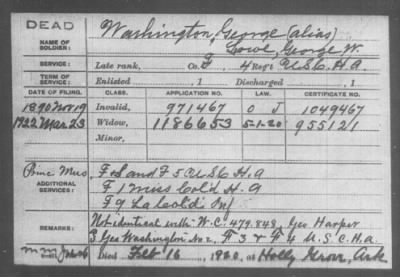 DEAD
NAME OF SOLDIER: Washington, George (alias)
Lowe, George W.
SERVICE: Late rank, Co. F, 4 Reg't U.S.C.H.A.
TERM OF SERVICE: Enlisted , 1 Discharged , 1
DATE OF FILING. CLASS. APPLICATION NO. LAW. CERTIFICATE NO.
1890 Nov 19 Invalid, 971467 O J 1049467
1922 Mar 23 Widow, 1186653 5-1-20 955121
Minor,
ADDITIONAL SERVICES: F S and F 5 U S C H.A
F 1 Miss Cold H-A
F 9 La Cold Inf
REMARKS: Not identical with W.C. 479.848, Geo Harper
Geo Washington No 2, F 3 & F 4 U.S.C.H.A
Died Feb 16, 1920, at Holly Grove, Ark